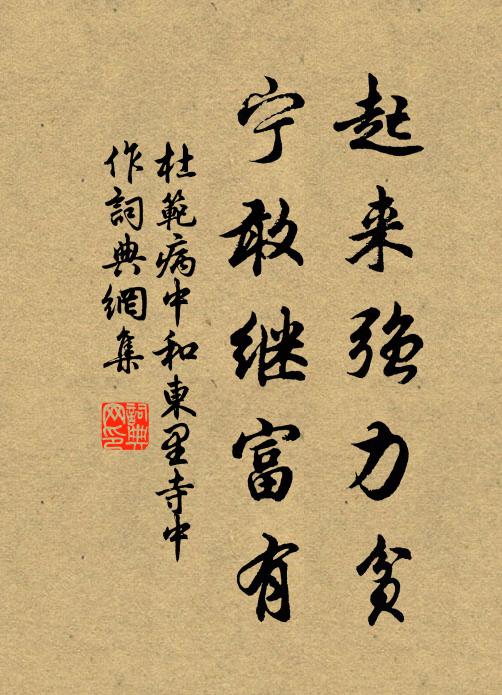 起来强力贫
宁敢继富有
杜範病中和東里寺中
作詞典網集
詞典网印